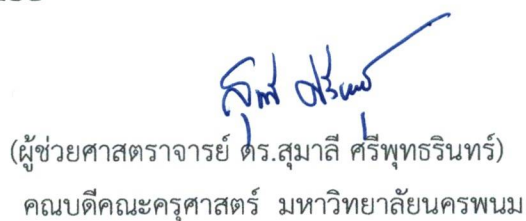 (ผู้ช่วยศาสตราจารย์ ดร.สุมาลี ศรีพุทธรินทร์)
คณบดีคณะครุศาสตร์ มหาวิทยาลัยนครพนม